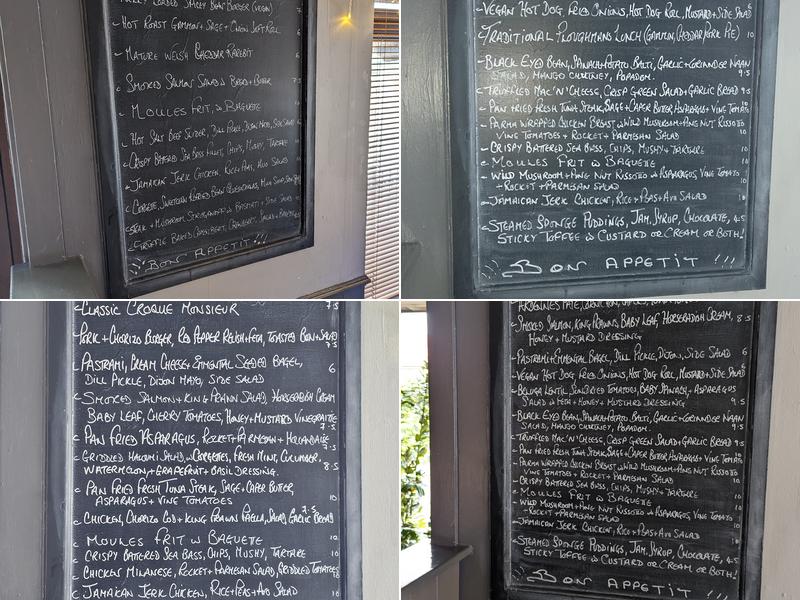 LOADED SMOKEY BEAN BURGER (VEGAN)
- HOT ROAST GAMMON + SAGE + ONION SOFT ROLL
- MATURE WELSH CHEDDAR RAREBIT
- SMOKED SALMON SALAD & BREAD + BUTTER
- MOULES FRIT, & BAGUETTE
- HOT SALT BEEF SLIDER, DILL PICKLE,
- CRISPY BATTERED SEA BASS FILLET, CHIPS, MUSHY, TARTARE
- JAMAICAN JERK CHICKEN, RICE + PEAS,
BON APPETIT !!!
- VEGAN HOT DOG FRIED ONIONS, HOT DOG ROLL, MUSTARD + SIDE SALAD 6
- TRADITIONAL PLOUGHMANS LUNCH (GAMMON, CHEDDAR, PORK PIE) 10
BLACK EYED BEAN, SPINACH + POTATO BALTI, GARLIC + CORIANDER NAAN
SALAD, MANGO CHUTNEY, POPADOM. 9.5
- TRUFFLED MAC 'N' CHEESE, CRISP GREEN SALAD + GARLIC BREAD 9.5
- PAN FRIED FRESH TUNA STEAK, SAGE + CAPER BUTTER ASPARAGUS + VINE TOMATO
- PARMA WRAPPED CHICKEN BREAST & WILD MUSHROOM + PINE NUT RISSOTO
VINE TOMATOES + ROCKET + PARMESAN SALAD 10
- CRISPY BATTERED SEA BASS, CHIPS, MUSHY + TARTARE 10
- MOULES FRIT & BAGUETTE 10
- WILD MUSHROOM + PINE NUT RISSOTO & ASPARAGUS, VINE TOMATO
+ ROCKET + PARMESAN SALAD 10
- JAMAICAN JERK CHICKEN, RICE + PEAS + AVO SALAD 10
- STEAMED SPONGE PUDDINGS, JAM, SYRUP, CHOCOLATE, 4.5
STICKY TOFFEE & CUSTARD OR CREAM OR BOTH!
BON APPETIT !!!
- CLASSIC CROQUE MONSIEUR 7.5
- PORK + CHORIZO BURGER, RED PEPPER RELISH + FETA, TOASTED BUN + SALAD 7.5
- PASTRAMI, CREAM CHEESE + EMMENTAL SEEDED BAGEL,
DILL PICKLE, DIJON MAYO, SIDE SALAD 6
- SMOKED SALMON + KING PRAWN SALAD, HORSERADISH CREAM
BABY LEAF, CHERRY TOMATOES, HONEY + MUSTARD VINEGRAITTE 7.5
- PAN FRIED ASPARAGUS, ROCKET + PARMESAN + HOLLANDAISE 7.5
- GRIDDLED HALOUMI SALAD, & CORGETTES, FRESH MINT, CUCUMBER,
WATERMELON + GRAPEFRUIT + BASIL DRESSING. 8.5
- PAN FRIED FRESH TUNA STEAK, SAGE + CAPER BUTTER,
ASPARAGUS + VINE TOMATOES 10
- CHICKEN, CHORIZO COD + KING PRAWN PAELLA, SALAD, GARLIC BREAD 9.5
- MOULES FRIT & BAGUETTE 10
- CRISPY BATTERED SEA BASS, CHIPS, MUSHY, TARTARE 10
- CHICKEN MILANESE, ROCKET + PARMESAN SALAD, GRIDDLED TOMATOES
- JAMAICAN JERK CHICKEN, RICE + PEAS + AVO SALAD 10
ARDENNES PATE,
- SMOKED SALMON, KING PRAWNS, BABY LEAF, HORSERADISH CREAM, 8.5
HONEY + MUSTARD DRESSING
- PASTRAMI + EMMENTAL BAGEL, DILL PICKLE, DIJON, SIDE SALAD 6
- VEGAN HOT DOG FRIED ONIONS, HOT DOG ROLL, MUSTARD + SIDE SALAD 6
- BELUGA LENTIL, SUNDRIED TOMATO, BABY SPINACH, ASPARAGUS
SALAD & FETA + HONEY & MUSTARD DRESSINGE 9.5
- BLACK EYED BEAN, SPINACH + POTATO BALTI, GARLIC + CORIANDER NAAN
SALAD, MANGO CHUTNEY, POPADOM. 9.5
- TRUFFLED MAC 'N' CHEESE, CRISP GREEN SALAD + GARLIC BREAD 9.5
- PAN FRIED FRESH TUNA STEAK, SAGE + CAPER BUTTER ASPARAGUS + VINE TOMATO
- PARMA WRAPPED CHICKEN BREAST & WILD MUSHROOM + PINE NUT RISSOTO
VINE TOMATOES + ROCKET + PARMESAN SALAD 10
- CRISPY BATTERED SEA BASS, CHIPS, MUSHY + TARTARE 10
- MOULES FRIT & BAGUETTE 10
- WILD MUSHROOM + PINE NUT RISSOTO & ASPARAGUS, VINE TOMATO
+ ROCKET + PARMESAN SALAD 10
- JAMAICAN JERK CHICKEN, RICE + PEAS + AVO SALAD 10
- STEAMED SPONGE PUDDINGS, JAM, SYRUP, CHOCOLATE, 4.5
STICKY TOFFEE & CUSTARD OR CREAM OR BOTH!
BON APPETIT !!!